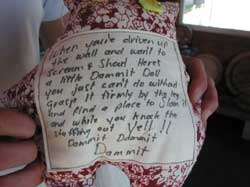 when you're driven up
the wall and want to
scream & shout Here's
a little Dammit Doll
you just can't do without
Grasp it firmly by the legs
and find a place to slam it
and while you knock the
stuffing out Yell !!
Dammit Dammit
Dammit